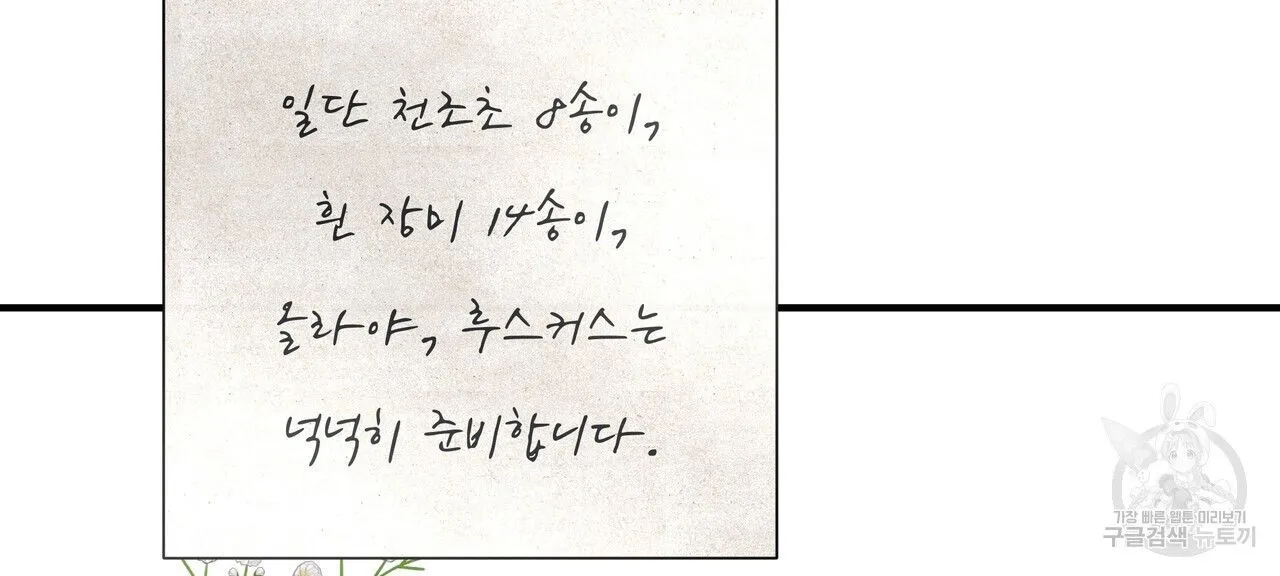 일단 천조초 8송이,
흰 장미 14송이,
올라야, 루스커스는
넉넉히 준비합니다.
가장 빠른 웹툰 미리보기
구글검색 뉴토끼